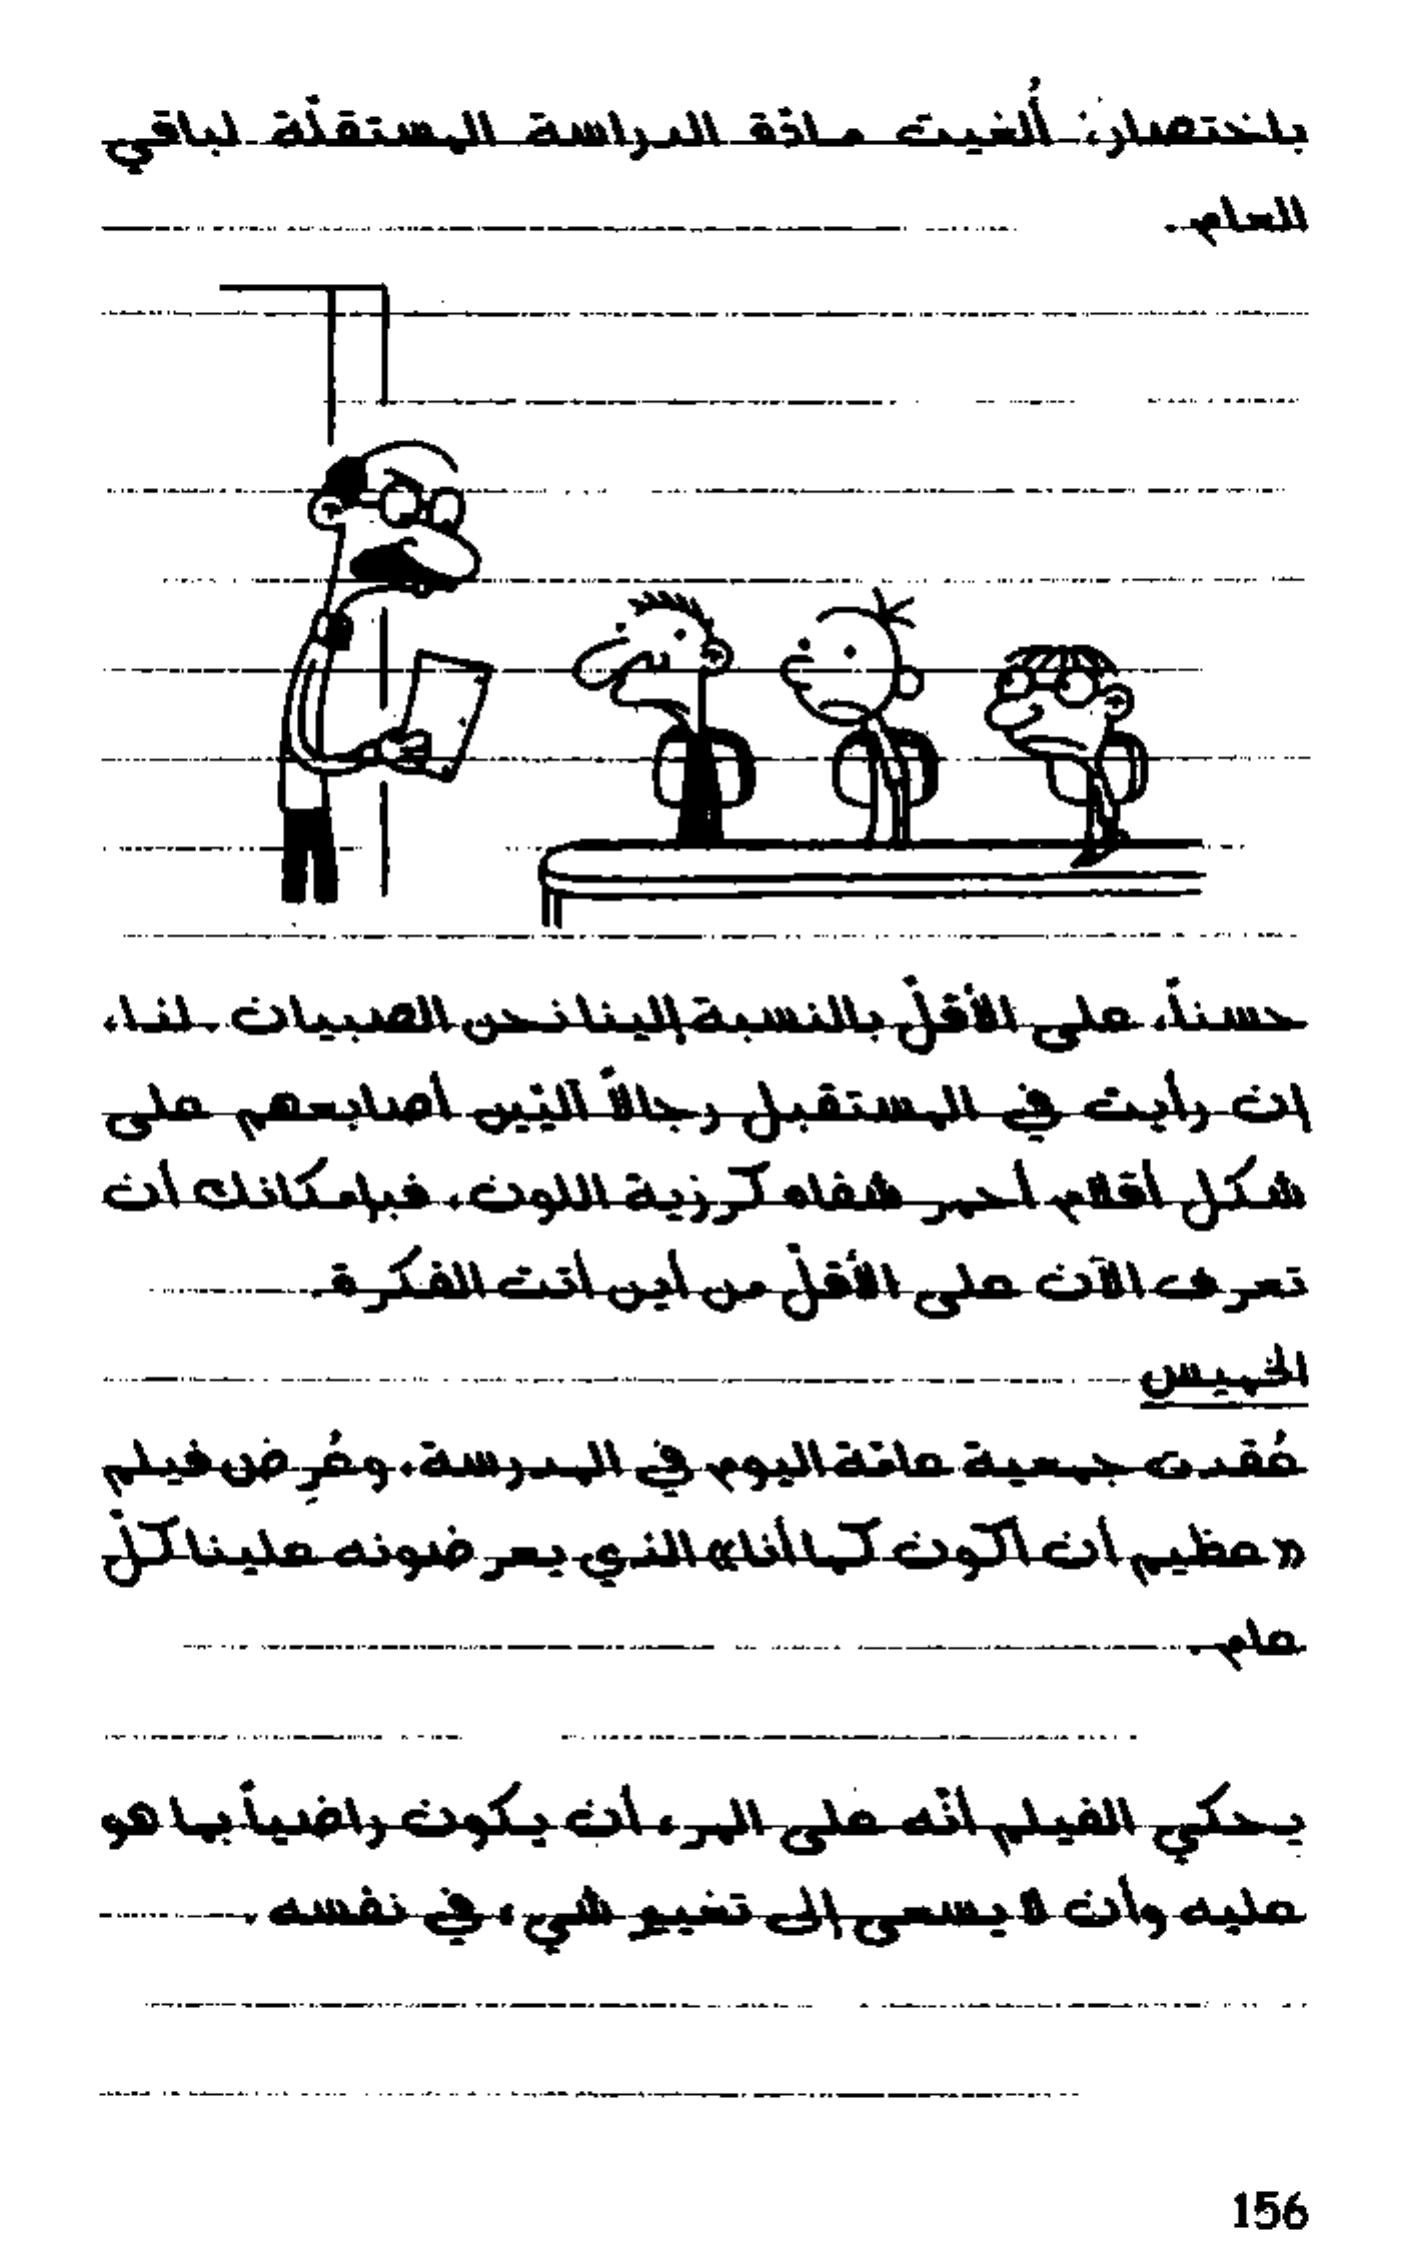 باختصار، أُلغيت مادّة الدراسة المستقلّة لباقي
العام.
حسناً، على الأقلّ بالنسبة إلينا نحن الصبيان. لذا،
إن رأيت في المستقبل رجالاً آليّين أصابعهم على
شكل أقلام أحمر شفاه كرزية اللون، فبإمكانك أن
تعرف الآن على الأقلّ من أين أتت الفكرة.
الخميس
عُقدت جمعية عامّة اليوم في المدرسة، وعُرِض فيلم
«عظيم أن أكون كما أنا» الذي يعرضونه علينا كلّ
عام.
يحكي الفيلم أنّه على المرء أن يكون راضياً بما هو
عليه وأن لا يسعى إلى تغيير شيء في نفسه.
156